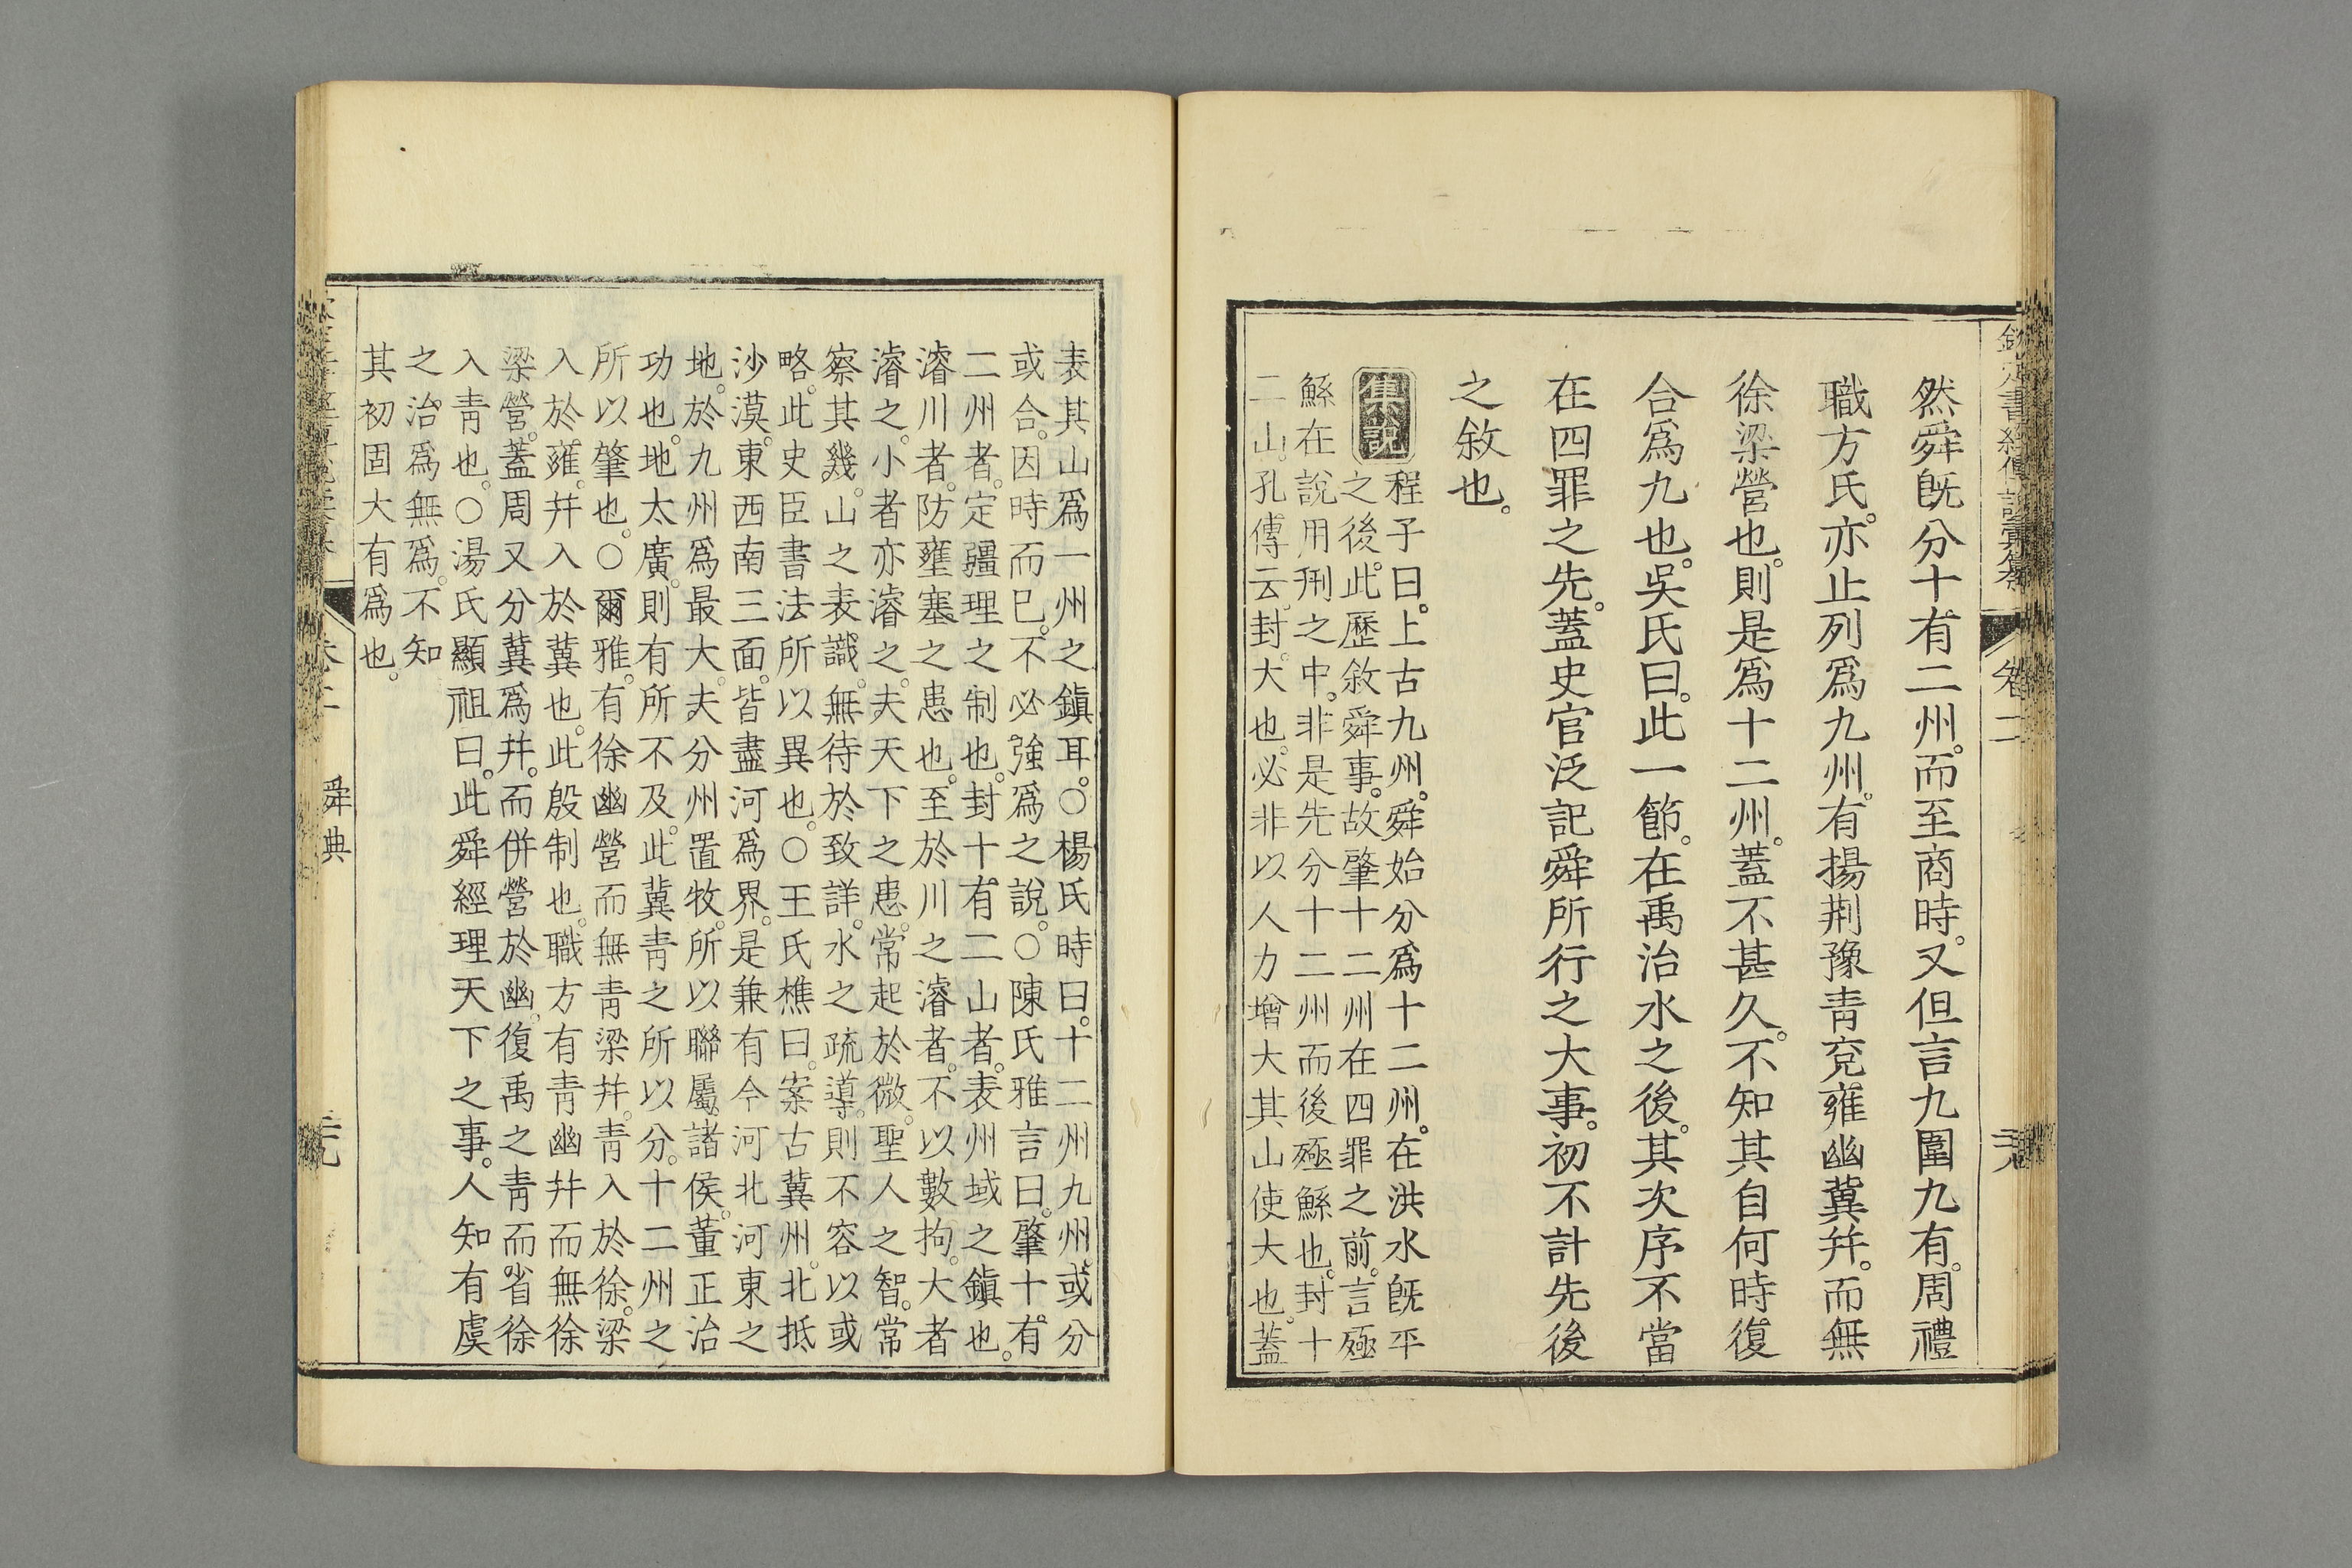 欽定書經傳說彙纂 卷二
然舜旣分十有二州。而至商時。又但言九圍九有。周禮
職方氏。亦止列爲九州。有揚荆豫靑兗雍幽冀幷。而無
徐梁營也。則是爲十二州。蓋不甚久。不知其自何時復
合爲九也。吳氏曰。此一節。在禹治水之後。其次序不當
在四罪之先。蓋史官泛記舜所行之大事。初不計先後
之敘也。
集說
程子曰。上古九州。舜始分爲十二州。在洪水旣平
之後。此歷敘舜事。故肇十二州在四罪之前。言殛
鯀在說用刑之中。非是先分十二州而後殛鯀也。封十
二山。孔傳云。封。大也。必非以人力增大其山使大也。蓋
表其山爲一州之鎭耳。○楊氏時曰。十二州九州。或分
或合。因時而已。不必強爲之說。○陳氏雅言曰。肇十有
二州者。定疆理之制也。封十有二山者。表州域之鎭也。
濬川者。防壅塞之患也。至於川之濬者。不以數拘。大者
濬之。小者亦濬之。夫天下之患。常起於微。聖人之智。常
察其幾。山之表識。無待於致詳。水之疏導。則不容以或
略。此史臣書法所以異也。○王氏樵曰。案古冀州。北抵
沙漠。東西南三面。皆盡河爲界。是兼有今河北河東之
地。於九州爲最大。夫分州置牧。所以聯屬諸侯。董正治
功也。地太廣。則有所不及。此冀靑之所以分。十二州之
所以肇也。○爾雅。有徐幽營而無靑梁幷。靑入於徐。梁
入於雍。幷入於冀也。此殷制也。職方有靑幽幷而無徐
梁營。蓋周又分冀爲幷。而併營於幽。復禹之靑。而省徐
入靑也。○湯氏顯祖曰。此舜經理天下之事。人知有虞
之治爲無爲。不知
其初固大有爲也。
卷二 舜典